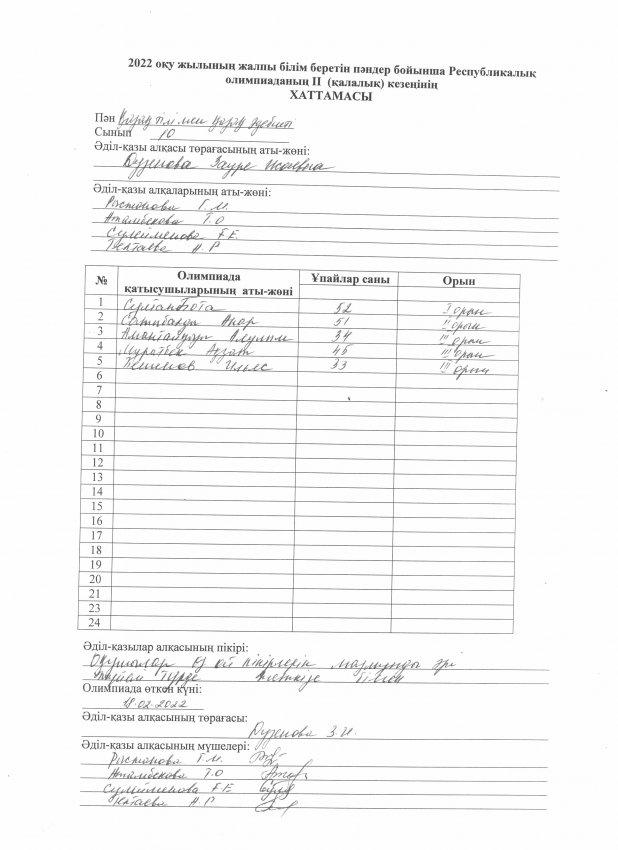 2022 оқу жылының жалпы білім беретін пәндер бойынша Республикалық
олимпиаданың II (қалалық) кезеңінің
ХАТТАМАСЫ
Пән Қазақ тілі мен қазақ әдебиеті
Сынып 10
Әділ-қазы алқасы төрағасының аты-жөні:
Дузенова Зауре
Әділ-қазы алқаларының аты-жөні:
Рыстанова Г.М.
Аталыбекова Т.О
Сулейменова Г.Е.
Тентаева Н.Р
№ Олимпиада қатысушыларының аты-жөні Ұпайлар саны Орын
1 Сұлтан Бота 52 I орын
2 Сатыбалды Анар 51 II орын
3 Амантайұлы 34 III орын
4 Мұратбек Азат 45 III орын
5 Ильяс 33 III орын
6
7
8
9
10
11
12
13
14
15
16
17
18
19
20
21
23
24
Әділ-қазылар алқасының пікірі:
Оқушылар өз ой пікірлерін мазмұнды әрі
түрде жеткізе білген
Олимпиада өткен күні:
18.02.2022
Әділ-қазы алқасының төрағасы:
Дузенова З.И.
Әділ-қазы алқасының мүшелері:
Рыстанова Г.М.
Аталыбекова Т.О
Сулейменова Г.Е.
Тентаева Н.Р